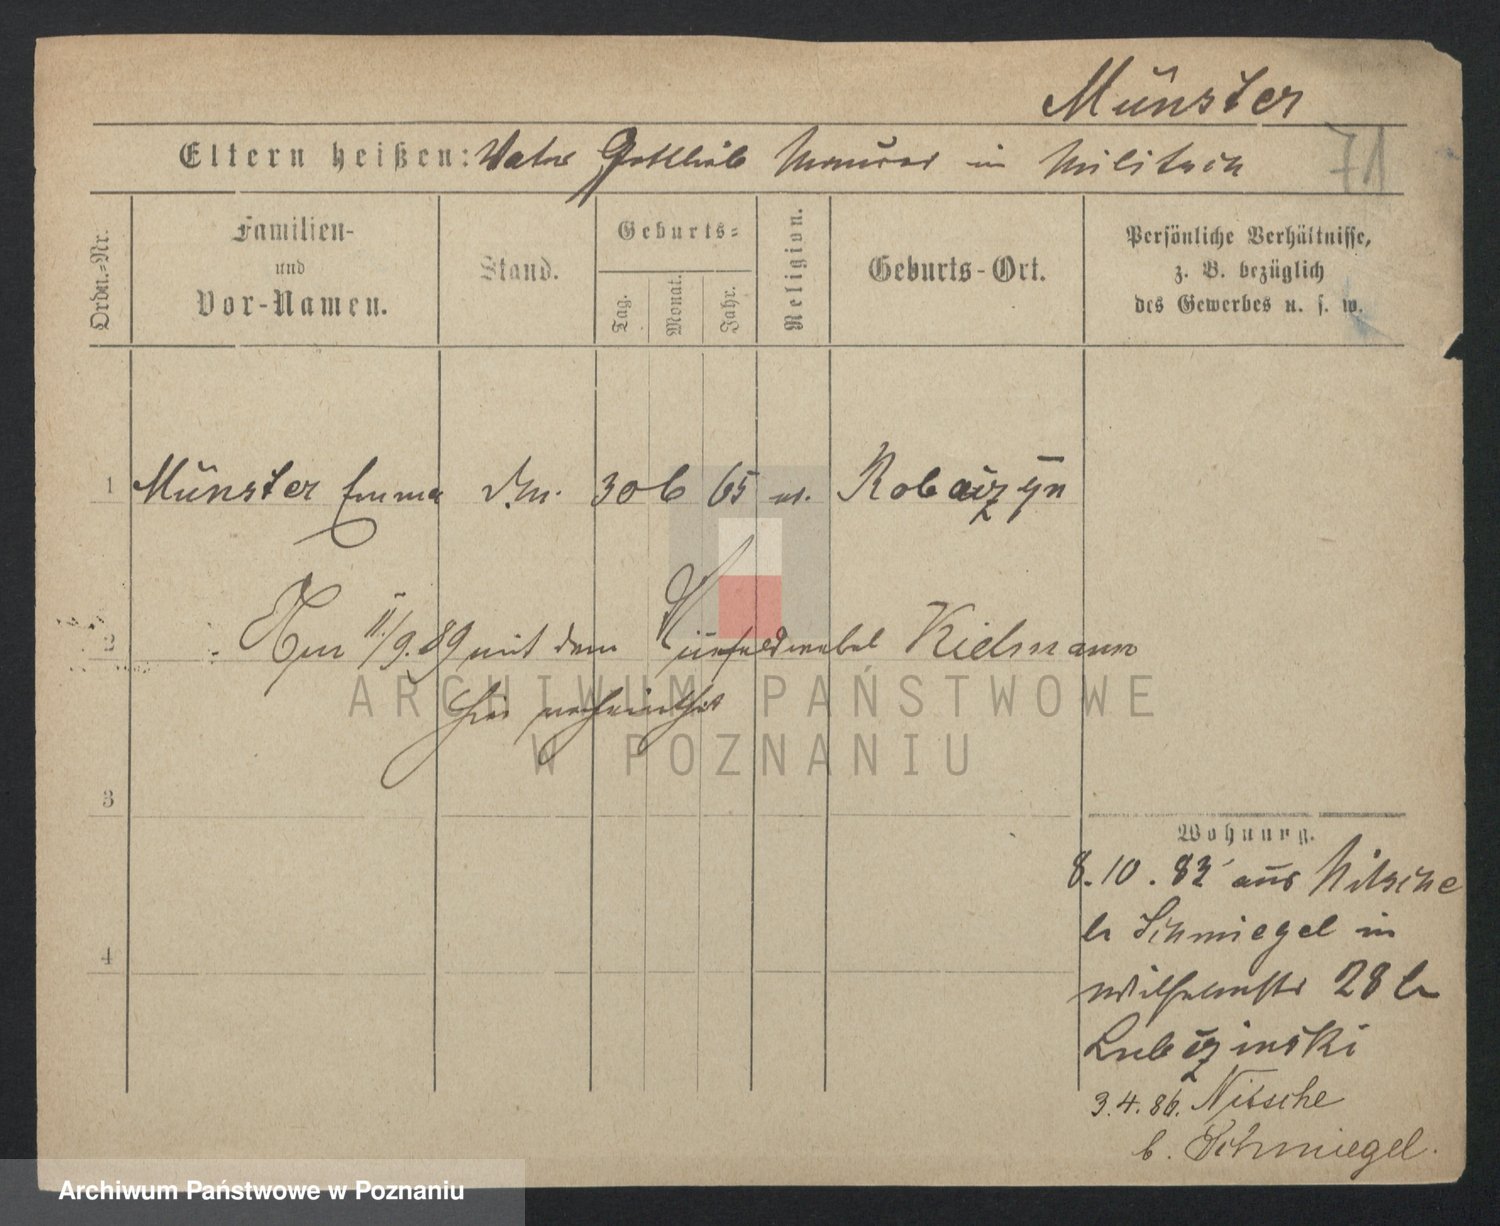 Münster
Eltern heißen: Vater Gottlieb Maurer in Militsch
71
Ordn.-Nr.
Familien-
und
Vor-Namen.
Stand.
Geburts-
Tag.
Monat.
Jahr.
Religion.
Geburts-Ort.
Persönliche Verhältnisse,
z. B. bezüglich
des Gewerbes u. s. w.
1 Münster Emma 30 6 65 Robaczyn
2 Am 11/9.89 mit dem Vizefeldwebel Kielmann
hier verheirathet
3
4
Wohnung.
8.10.82 aus Nitsche
b Schmiegel in
Wilhelmstr 28 b
Lubczinski
3.4.86. Nitsche
b. Schmiegel.
ARCHIWUM PAŃSTWOWE
W POZNANIU
Archiwum Państwowe w Poznaniu